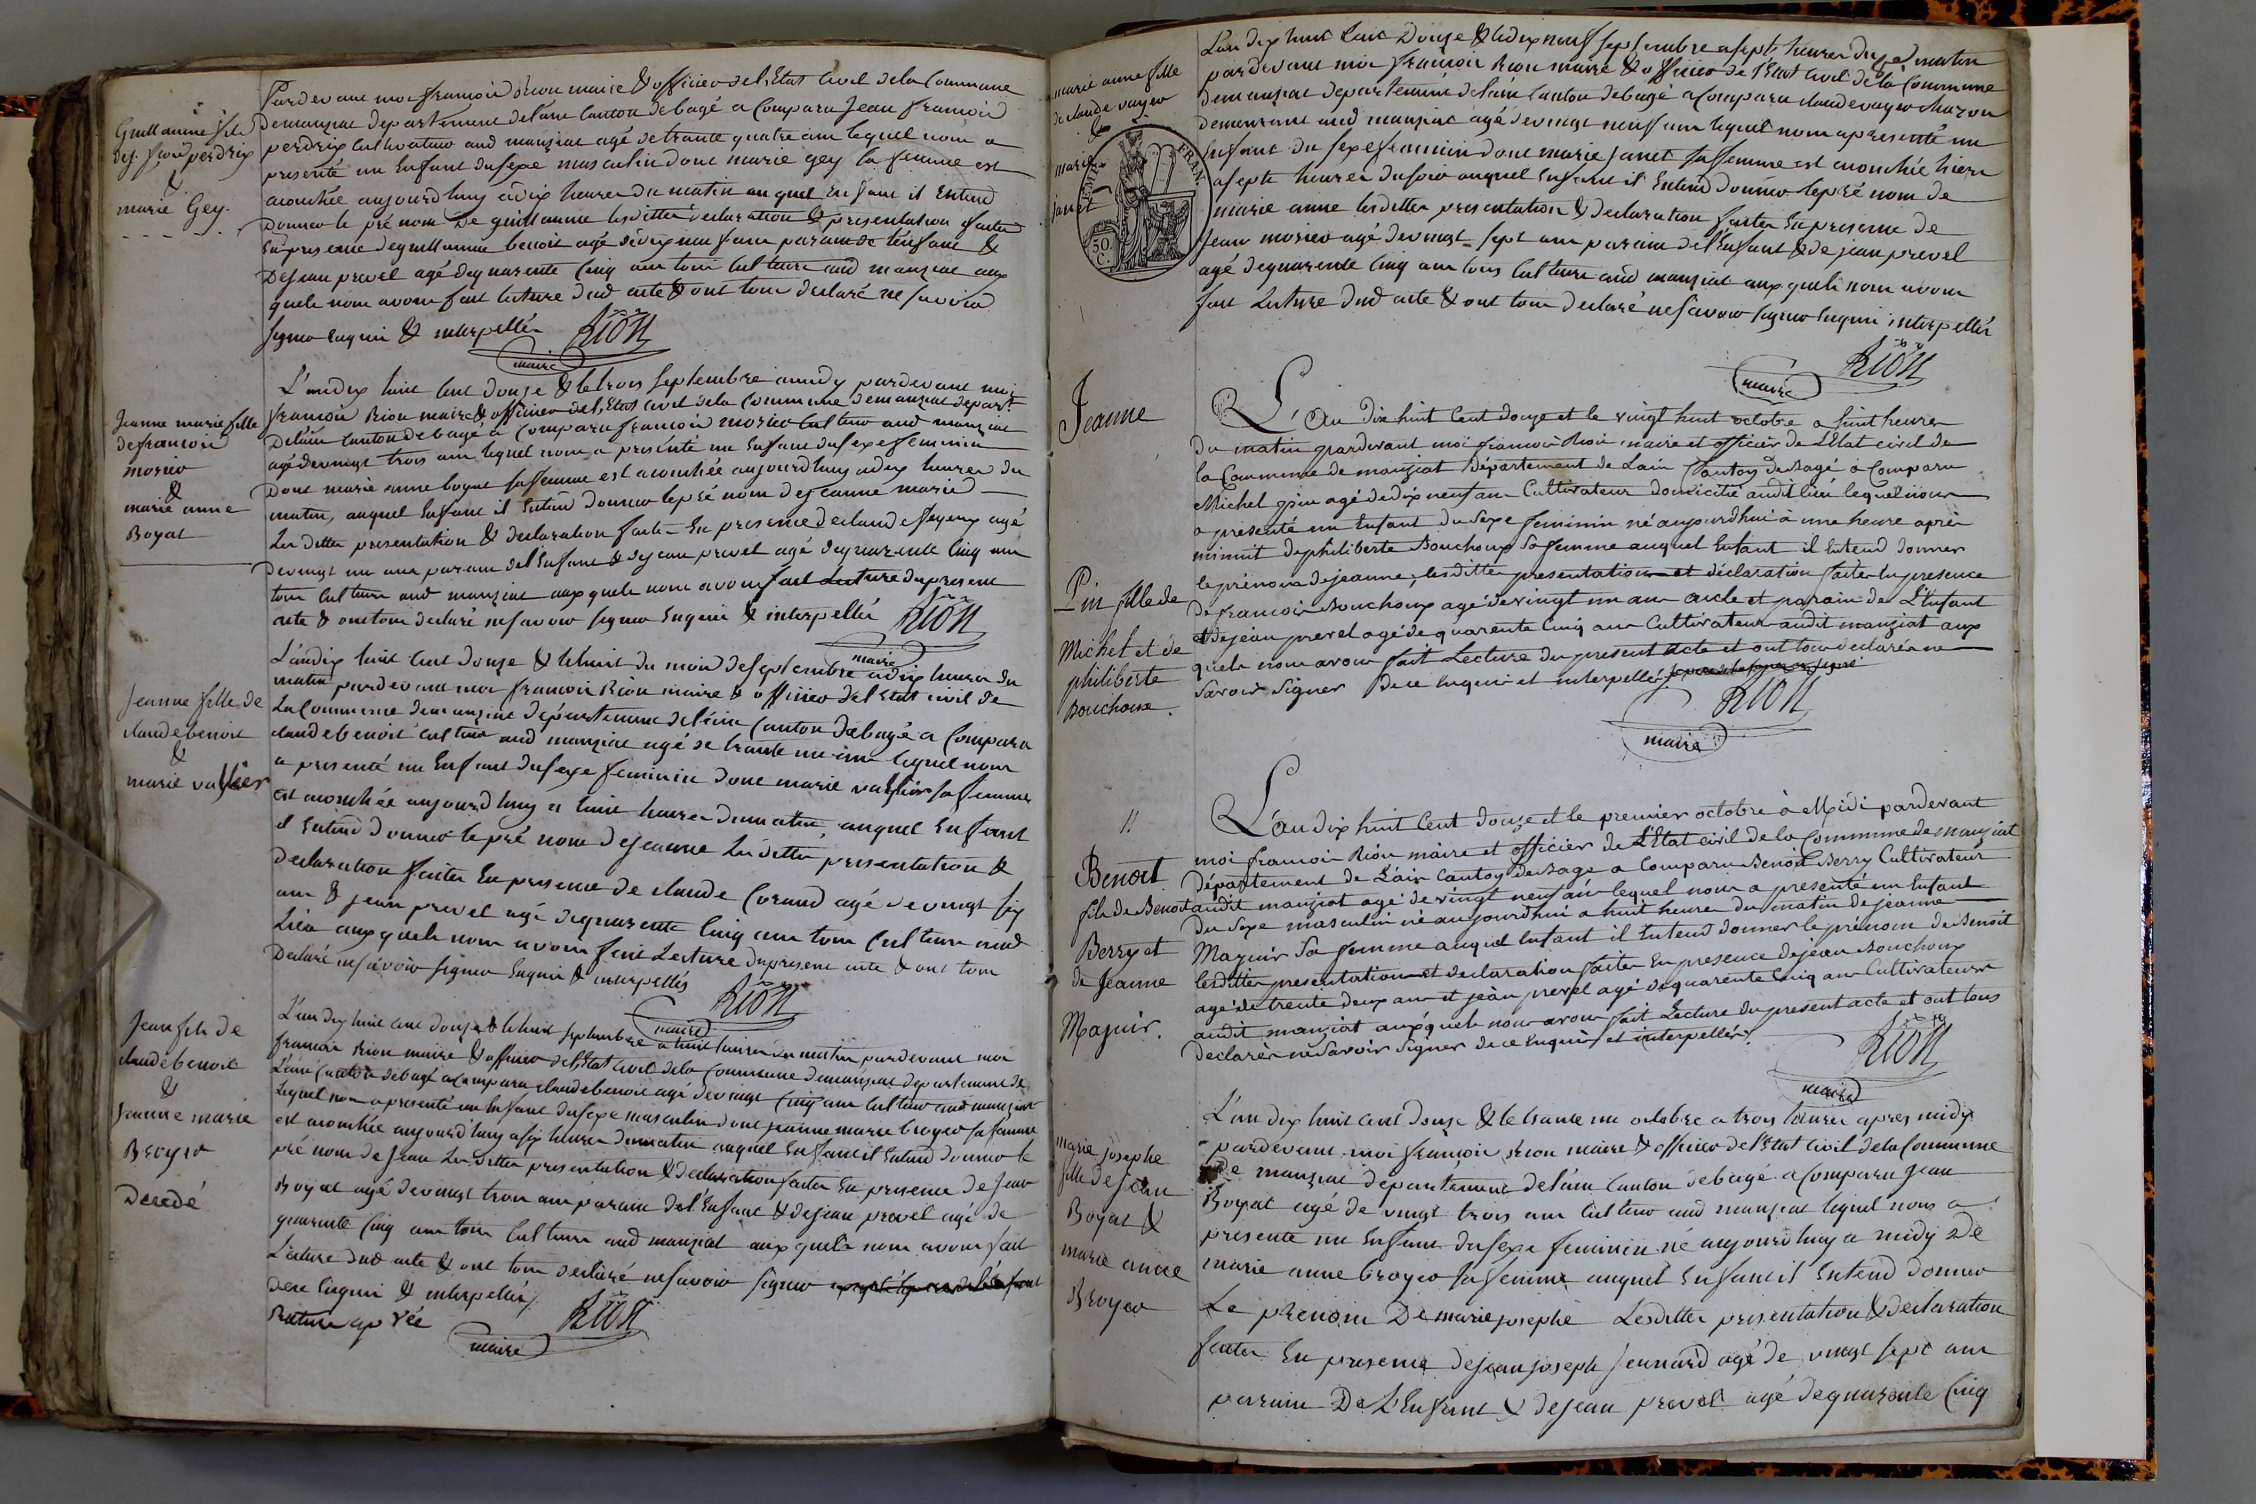 Guillaume fils
dej. fcois perdrix
&
marie Gey.
Pardevant moi francois Rion maire & officier de l'Etat Civil dela Commune
demanziat departement delain Canton debagé a Comparu Jean francois
perdrix Cultivateur aud manziat agé detrante quatre ans lequel nous a
presenté un Enfant dusexe masculin dont marie gey sa femme est
acouchée aujourdhuy adix heures du matin auquel Enfant il Entend
Donner le pré nom De guillaume lesdittes declaration & presentation faites
En presence deguillaume benoit agé dedix neuf ans parain de l'enfant &
Dejean prevel agé dequarente Cinq ans tous Cultiurs aud manziat aux
quels nous avons fait lecture dud acte & ont tous declaré ne savoir
signer Enquis & interpellés
Rion
maire
Jeanne marie fille
defrancois
morier
&
marie anne
Boyat
L'andix huit Cent douze & letrois septembre amidy pardevant moi
francois Rion maire & officier del'Etat Civil dela Commune demanziat depart.t
Delain Canton debagé a Comparu francois morier Cultiur aud manziat
agé devingt trois ans lequel nous a presenté un Enfant dusexe feminin
Dont marie anne boyat sa femme est acouchée aujourdhuy adix heures du
matin, auquel Enfant il Entend donner le pré nom dejeanne marie
Les dittes presentation & declaration faites En presence declaude feyeux agé
devingt un ans parain del'Enfant & dejean prevel agé dequarente Cinq ans
tous Cultiurs aud manziat auxquels nous avons fait Lecture dupresent
acte & onttous declaré nesavoir signer Enquis & interpellés
Rion
maire
Jeanne fille de
claudebenoit
&
marie vallier
L'andix huit Cent douze & lehuit du mois deseptembre adix heures du
matin pardevant moi francois Rion maire & officier del'Etat Civil de
La Commune demanziat departement delain Canton debagé a Comparu
claudebenoit Cultiur aud manziat agé de trante un ans lequel nous
a presenté un Enfant dusexe feminin dont marie vallier sa femme
est acouchée aujourdhuy a huit heures dumatin, auquel Enfant
il Entend donner le pré nom dejeanne Les dittes presentation &
declaration faites En presence de claude Corand agé devingt six
ans & jean prevel agé dequarente Cinq ans tous Cultiurs aud
Lieu auxquels nous avons fait Lecture dupresent acte & ont tous
Declaré nesavoir signer Enquis & interpellés
Rion
maire
Jean fils de
claudebenoit
&
Jeanne marie
Broyer
Decedé
L'an dix huit cent douze & lehuit septembre a huit heures du matin pardevant moi
francois Rion maire & officier del'Etat Civil dela Commune demanziat departement de
Lain Canton debagé aComparu claudebenoit agé devingt Cinq ans Cultiur aud manziat
Lequel nous apresenté un Enfant dusexe masculin dont jeanne marie broyer sa femme
est acouchée aujourd'huy asix heures dumatin auquel Enfant il Entend donner le
pré nom de Jean Les dittes presentation & declaration faites En presence de Jean
Boyat agé devingt trois ans parain del'Enfant & dejean prevel agé de
quarente Cinq ans tous Cultiurs aud manziat auxquels nous avons fait
Lecture dud acte & ont tous declaré nesavoir signer
dece Enquis & interpellés
Rature ap vée
Rion
maire
marie anne fille
de claude vayer
&
marie
janet
EMP. FRAN.
50.
C.
L'an dix huit Cent Douze & ledix neuf septembre asepts heures du matin
pardevant moi francois Rion maire & officier de l'Etat Civil de la Commune
demanziat departement delain Canton debagé aComparu claudevayer
demeurant aud manziat agé devingt neuf ans lequel nous apresenté un
Enfant du sexe feminin dont marie Janet sa femme est acouchée hier
asepts heures dusoir auquel Enfant il Entend donner lepré nom de
marie anne lesdittes presentation & declaration faites En presence de
Jean morier agé devingt sept ans parain del'Enfant & de jean prevel
agé dequarente Cinq ans tous Cultiurs aud manziat auxquels nous avons
fait Lecture dud acte & ont tous declaré nesavoir signer Enquis interpellés
Rion
maire
Jeanne
Pin fille de
Michel et de
philiberte
Bouchoux.
L'An Dix huit Cent Douze et le vingt huit octobre a huit heures
du matin pardevant moi francois Rion maire et officier de L'Etat civil de
la Commune de manziat Département de Lain Canton DeBagé a Comparu
Michel pin agé dedix neuf ans Cultivateur domicilié audit lieu lequel nous
a presenté un Enfant du Sexe feminin né aujourdhui à une heure après
minuit dephiliberte Bouchoux Sa femme auquel Enfant il Entend donner
le prénom dejeanne, lesdittes presentation et déclaration faites En presence
de francois Bouchoux agé de vingt un ans oncle et parain de L'Enfant
et dejean prevel agé de quarente Cinq ans Cultivateurs audit manziat aux
quels nous avons fait Lecture du present acte et ont tous declaré ne
savoir signer De ce Enquis et interpellés
Rion
maire
11
Benoit
fils de Benoit
Berry et
de Jeanne
Maguir.
L'an dix huit Cent Douze et le premier octobre à Midi pardevant
moi francois Rion maire et officier de L'Etat civil de la Commune de manziat
département de L'ain Canton deBagé a Comparu Benoit Berry Cultivateur
audit manziat agé de vingt neuf ans lequel nous a presenté un Enfant
du Sexe masculin né aujourdhui a huit heures du matin de jeanne
Maguir Sa femme auquel Enfant il Entend donner le prénom de Benoit
lesdittes presentation et declaration faites En presence dejean Bouchoux
agé de trente deux ans et jean prevel agé dequarente Cinq ans Cultivateurs
audit manziat auxquels nous avons fait Lecture du present acte et ont tous
declarés ne Savoir Signer de ce Enquis et interpellés.
Rion
maire
marie josephe
fille de jean
Boyat &
marie anne
Broyer
L'an dix huit Cent Douze & le trante un octobre a trois heures apres midy
pardevant moi francois Rion maire & officier de l'Etat Civil dela Commune
De manziat departement delain Canton debagé a Comparu Jean
Boyat agé de vingt trois ans Cultiur aud manziat lequel nous a
presenté un Enfant dusexe feminin né aujourdhuy a midy De
marie anne broyer sa femme auquel Enfant il Entend donner
Le prenom De marie josephe Lesdittes presentation & declaration
faites En presence dejean joseph Jennard agé de vingt sept ans
parrain De L'Enfant & dejean prevel agé dequarente Cinq